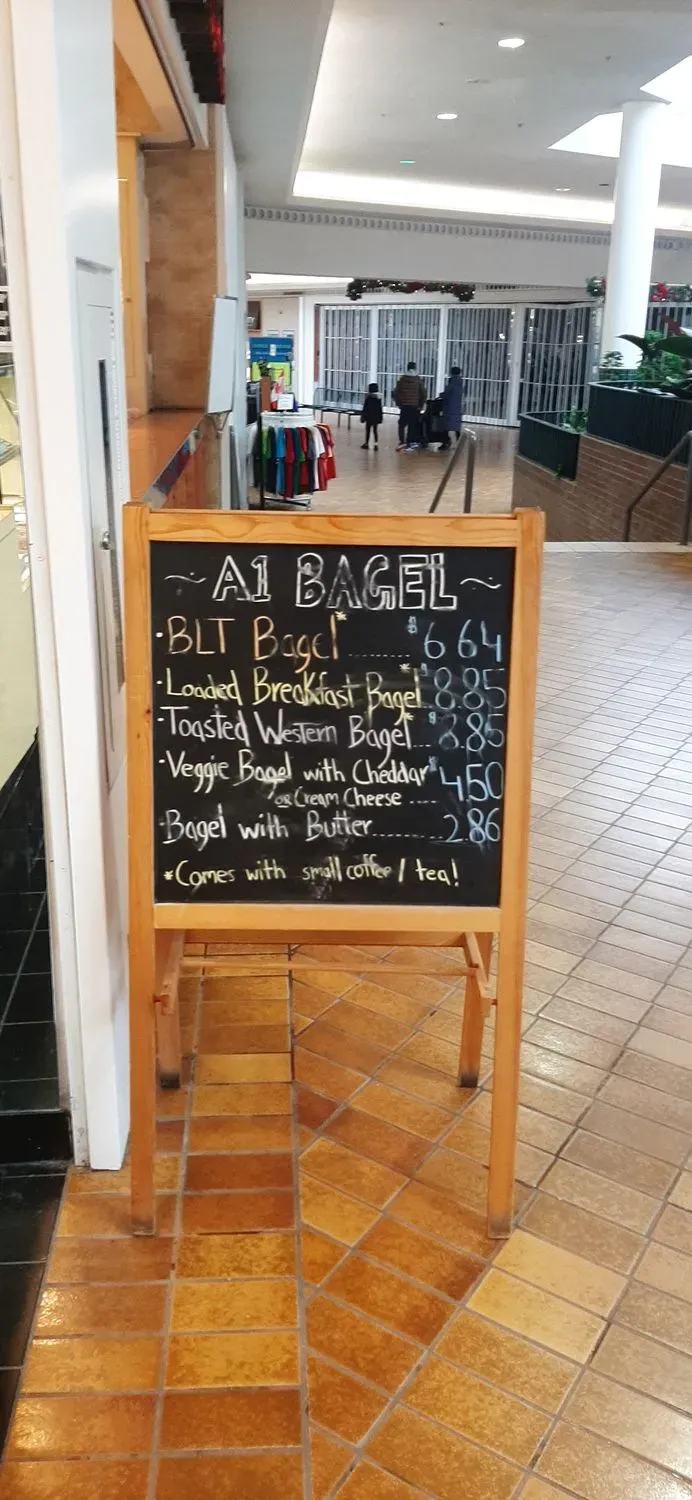 ~ A1 BAGEL ~
·BLT Bagel*........ $6.64
·Loaded Breakfast Bagel*..$8.85
·Toasted Western Bagel*...$8.85
·Veggie Bagel with Cheddar $4.50
or Cream Cheese ....
·Bagel with Butter..........2.86
*Comes with small coffee / tea!